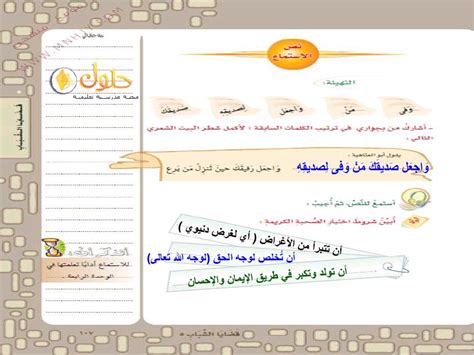 نص
الاستماع
التهيئة:
وَفى
مَنْ
وَاجعل
لِصديقِهِ
صَديقَكَ
- أشارك من بجواري في ترتيب الكلمات السابقة ؛ لأكمل شطر البيت الشعري
التالي:
يقول أبو العتاهية:
وَاجعَل صَديقَكَ مَنْ وَفى لِصديقِهِ
وَاجعَل رَفيقَكَ حينَ تَنزِلُ مَن يَرِع
أستمع للنَّص، ثم أُجيبُ:
أُبيّنُ شروطَ اختيارِ الصُّحبة الكريمة.
أن تتبرأ من الأغراض ( أي لغرض دنيوي )
أن تُخلص لوجه الحق (لوجه الله تعالى)
أن تولد وتكبر في طريق الإيمان والإحسان
حلول
للاستماع آدابًا تعلمتها في
الوحدة الرابعة.
قضايا الشباب
١٠٧
WWW.MNHJI.COM